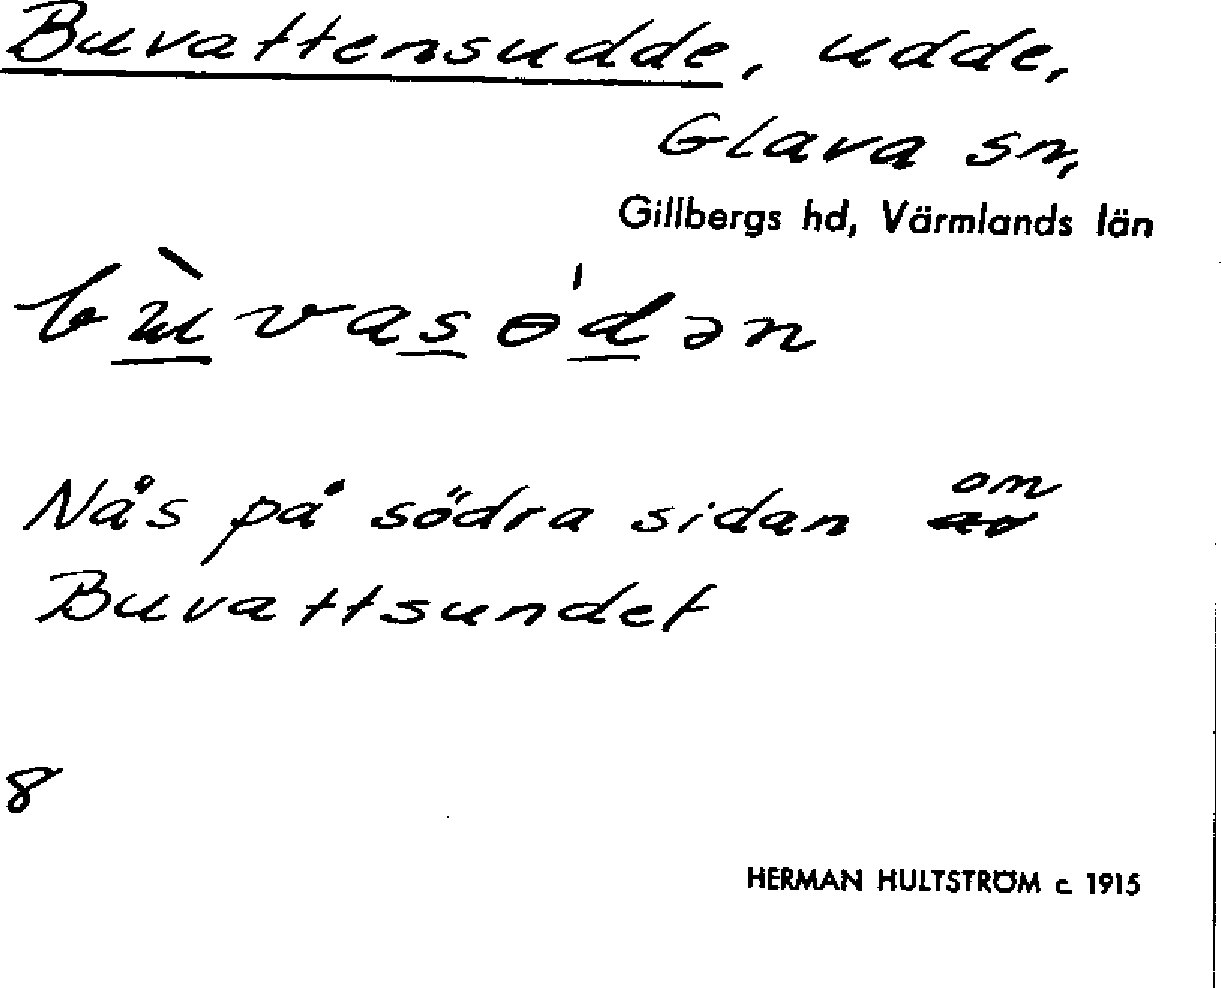 Buvattensudde, udde,
Glava sn,
Gillbergs hd, Värmlands län
Nås på södra sidan om
Buvattsundet
8
HERMAN HULTSTRÖM c. 1915